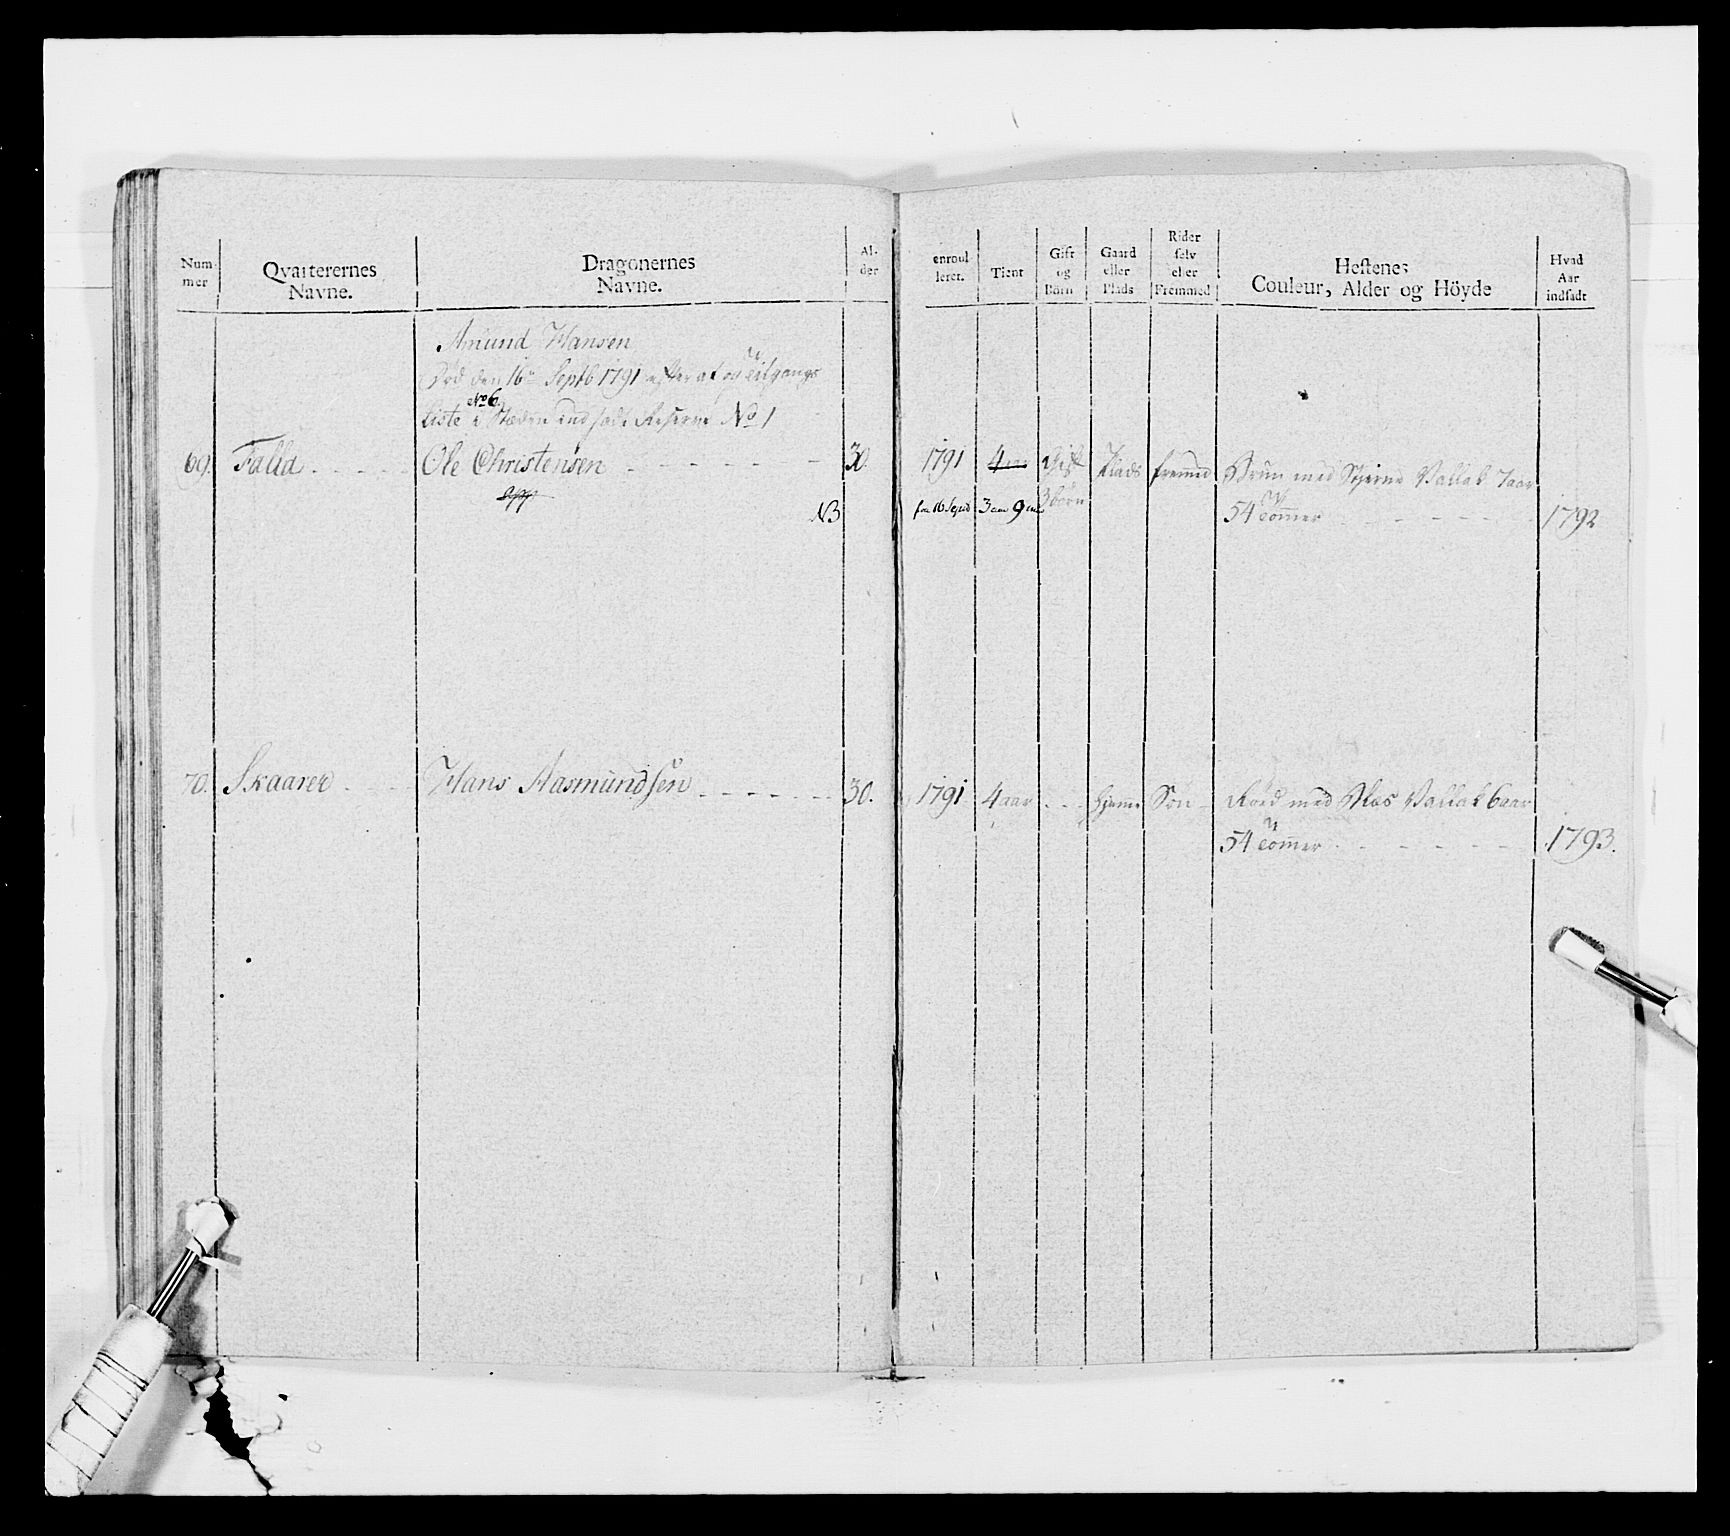 Num-
mer
Qvarterernes
Navne.
Dragonernes
Navne.
Al-
der
enroul
leret.
Tient
Gift
og
Börn
Gaard
eller
Plads
Rider
selv
eller
Fremmed
Hestenes
Couleur, Alder og Höyde
Hvad
Aar
indsadt
Amund Hansen
Död den 16de Septb 1791 efter af og tilgangs
Liste No 6. Stæden indsadt Reserve No 1
69. Falld Ole Christensen 30. 1791 4 aar Gift Plads fremed Brun med Stjerne Vallak 7 aar
NB fra 16 Septb 3 aar 9 3 börn 54 Tommer 1792
70. Skaarer Hans Aasmundsen 30. 1791 4 aar hjeme Sön Röd med Blas Vallak 6 aar
54 Tommer 1793.